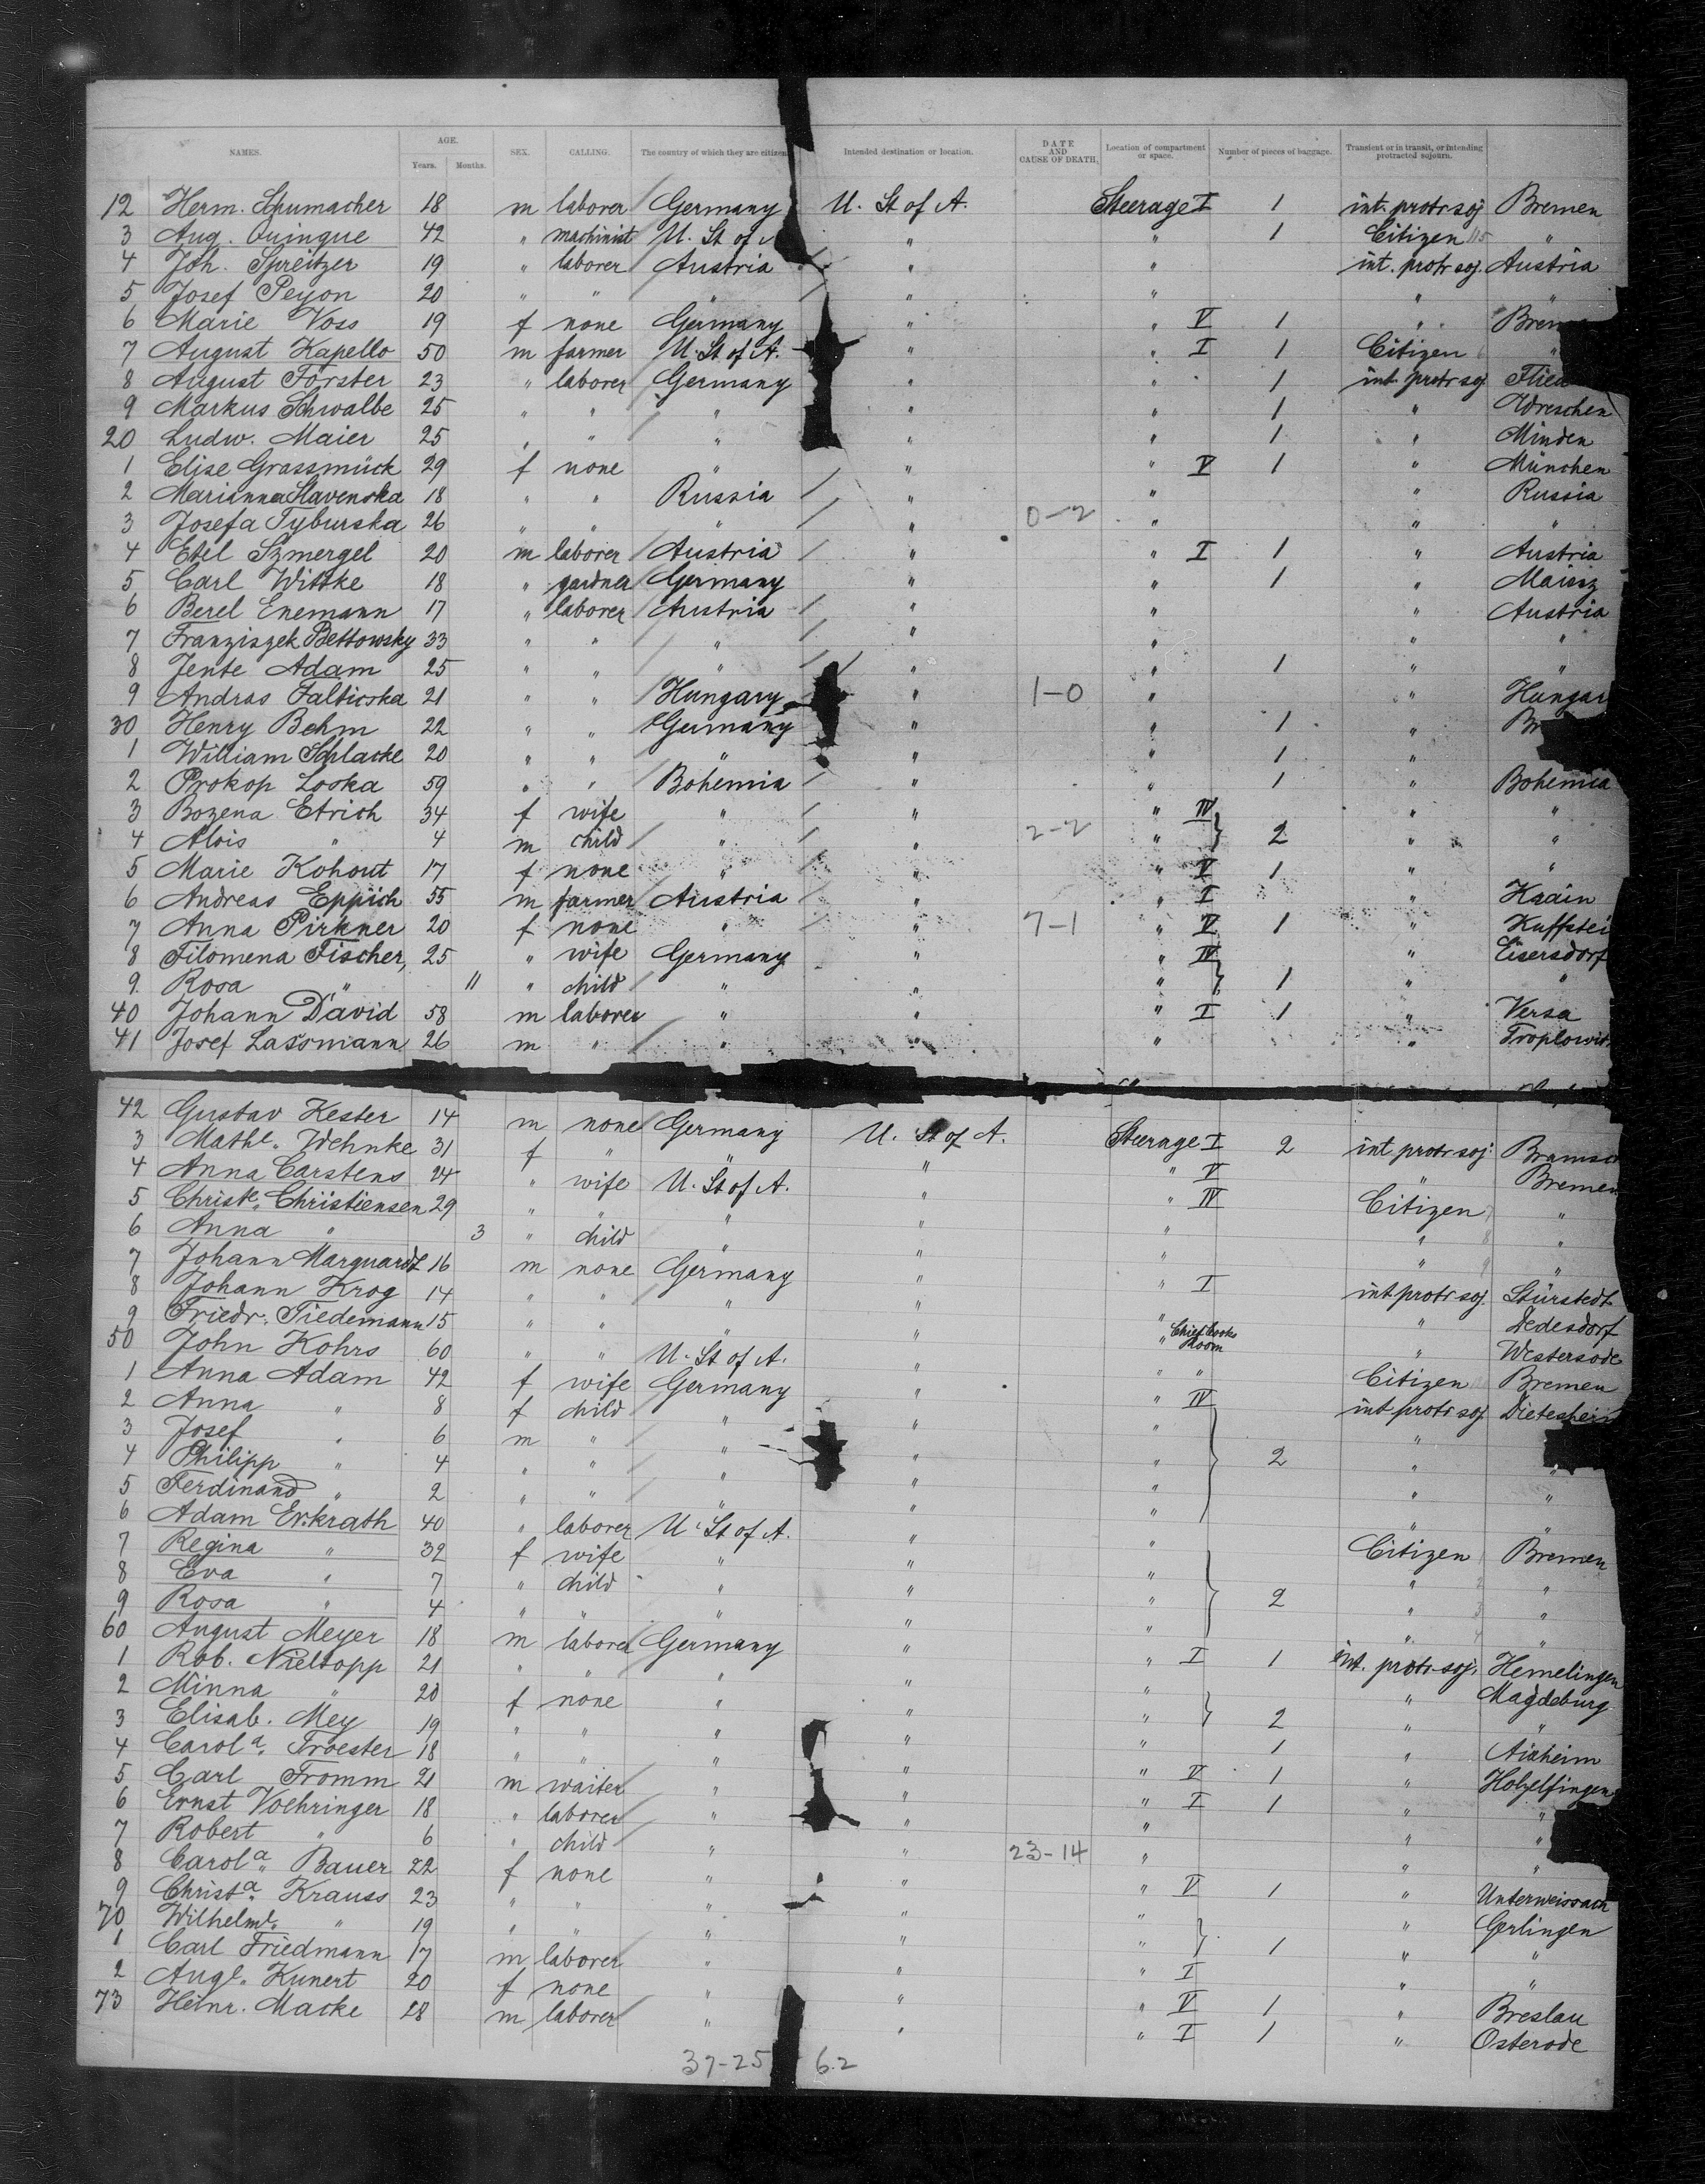 NAMES. AGE. Years. Months. SEX. CALLING. The country of which they are citizen Intended destination or location. DATE AND CAUSE OF DEATH. Location of compartment or space. Number of pieces of baggage. Transient or in transit, or intending protracted sojourn.
12 Herm. Schumacher 18 m laborer Germany U. St of A. Steerage I 1 int. protr soj Bremen
3 Aug. Quinque 42 " machinist U. St of A " " 1 Citizen "
4 Joh. Spreitzer 19 " laborer Austria " " int. protr soj. Austria
5 Josef Peyon 20 " " " " " " "
6 Marie Voss 19 f none Germany " " V 1 " Brem
7 August Kapello 50 m farmer U. St of A. " " I 1 Citizen "
8 August Förster 23 " laborer Germany " " 1 int. protr soj
9 Markus Schwalbe 25 " " " " " 1 "
20 Ludw. Maier 25 " " " " " 1 " Minden
1 Elise Grassmück 29 f none " " " V 1 " München
2 Marianna Slavenska 18 " " Russia " " " Russia
3 Josefa Tyburska 26 " " " " 0-2 " " "
4 Etel Szmergel 20 m laborer Austria " " I 1 " Austria
5 Carl Wittke 18 " gardner Germany " " 1 " Mainz
6 Berel Enemann 17 " laborer Austria " " " Austria
7 Franziszek Bettowsky 33 " " " " " " "
8 Jente Adam 25 " " " " " 1 " "
9 Andras Falticska 21 " " Hungary " 1-0 " " Hungar
30 Henry Behm 22 " " Germany " " 1 " Br
1 William Schlacke 20 " " " " " 1 "
2 Prokop Loska 59 " " Bohemia " " 1 " Bohemia
3 Bozena Etrich 34 f wife " " " IV " "
4 Alois " 4 m child " " 2-2 " 2 " "
5 Marie Kohout 17 f none " " " V 1 " "
6 Andreas Eppich 55 m farmer Austria " " I " Krain
7 Anna Pirkner 20 f none " " 7-1 " V 1 " Kuffstei
8 Filomena Fischer, 25 " wife Germany " " IV " Eisersdorf
9 Rosa " 11 " child " " " 1 " "
40 Johann David 58 m laborer " " " I 1 " Versa
41 Josef Lassmann 26 m " " " " " Troplowit
42 Gustav Kester 14 m none Germany U. St of A. Steerage I 2 int. protr soj. Bramsc
3 Mathe. Wehnke 31 f " " " " V " Bremen
4 Anna Carstens 24 " wife U. St of A. " " IV Citizen "
5 Christe. Christiensen 29 " " " " " " "
6 Anna " 3 " child " " " " "
7 Johann Marquardt 16 m none Germany " " I int protr soj. Stürstedt
8 Johann Krog 14 " " " " " " Dedesdorf
9 Friedr. Tiedemann 15 " " " " " Chief Cooks Room " Westersode
50 John Kohrs 60 " " U. St of A. " " " Citizen Bremen
1 Anna Adam 42 f wife Germany " " IV int protr soj Dietesheim
2 Anna " 8 f child " " " "
3 Josef " 6 m " " " " 2 " "
4 Philipp " 4 " " " " " " "
5 Ferdinand " 2 " " " " " " "
6 Adam Erkrath 40 " laborer U. St of A. " " Citizen Bremen
7 Regina " 32 f wife " " " " "
8 Eva " 7 " child " " " 2 " "
9 Rosa " 4 " " " " " " "
60 August Meyer 18 m laborer Germany " " I 1 int. protr soj. Hemelingen
1 Rob. Nieltopp 21 " " " " " " Magdeburg
2 Minna " 20 f none " " " 2 " "
3 Elisab. Mey 19 " " " " " 1 " Aixheim
4 Carola. Troester 18 " " " " " V 1 " Holzelfingen
5 Carl Fromm 21 m waiter " " " I 1 " "
6 Ernst Voehringer 18 " laborer " " " " "
7 Robert " 6 " child " " 23-14 " " "
8 Carola. Bauer 22 f none " " " V 1 " Unterweissach
9 Christa. Krauss 23 " " " " " " Gerlingen
70 Wilhelme. " 19 " " " " " 1 " "
1 Carl Friedmann 17 m laborer " " " I " "
2 Auge. Kunert 20 f none " " " V 1 " Breslau
73 Heinr. Macke 28 m laborer " " " I 1 " Osterode
37-25 62